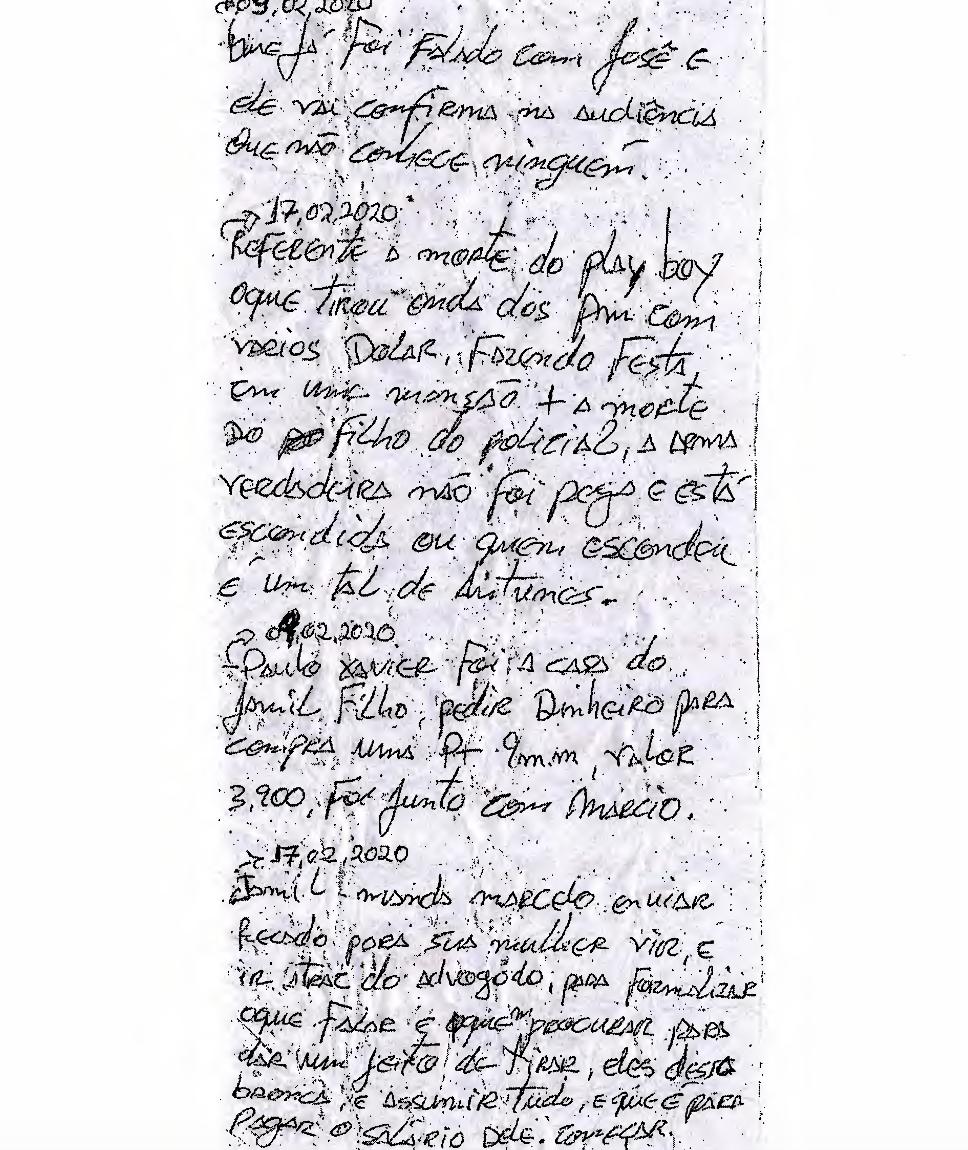 09,02,2020
Que já Foi Falado com José e
ele vai confirma na audiência
Que não conhece ninguém.
→ 17,02,2020
Referente a morte do play boy
oque tirou onda dos com
varios Dolar, Fazendo Festa,
em uma monsão + a morte
Do filho do policial, a arma
verdadeira não foi pega e está
escondida ou quem escondeu
é um tal de Antunes.
→ 09,02,2020
- Paulo Xavier Foi a casa do
Jamil Filho, pedir Dinheiro para
compra uma Pt 9m.m, valor
3,900, Foi junto com Marcio.
→ 17,02,2020
Jamil - manda marcelo enviar
Recado para sua mulher vir, e
ir atrac do advogado, para Formalizar
oque Falar e oquem procurar para
dar um jeito de tirar, eles desta
bronca, e assumir tudo, e que é para
Pagar o salário Dele. começar.